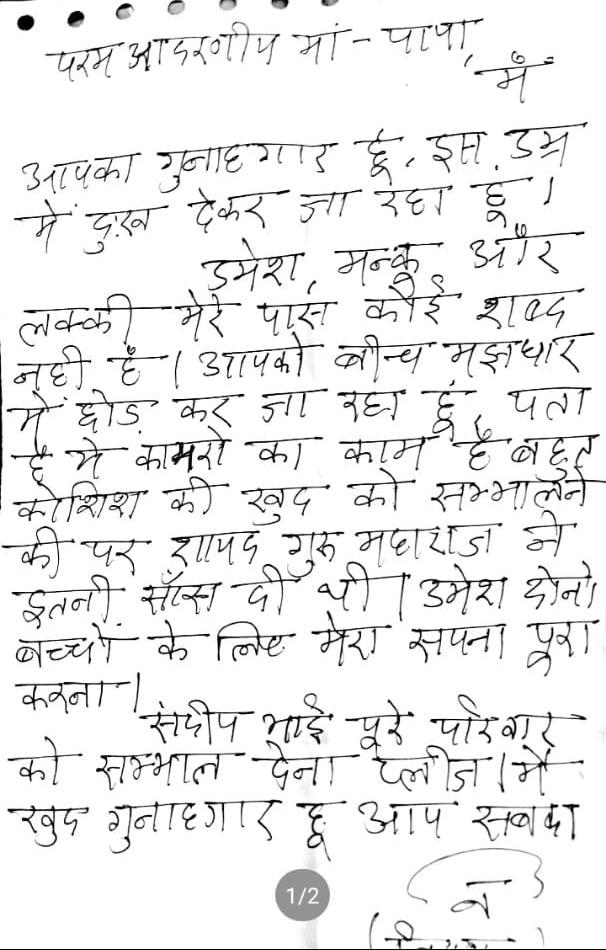 परम आदरणीय मां - पापा,
मैं
आपका गुनाहगार हूं, इस उम्र
में दुःख देकर जा रहा हूं।
उमेश, मन्कू और
लक्की मेरे पास कोई शब्द
नही हैं। आपको बीच मझधार
में छोड़ कर जा रहा हूं, पता
है ये कायरो का काम है बहुत
कोशिश की खुद को सम्भालने
की पर शायद गुरु महाराज ने
इतनी साँस दी थी। उमेश दोनो
बच्चों के लिए मेरा सपना पूरा
करना।
संदीप भाई पूरे परिवार
को सम्भाल देना प्लीज। मैं
खुद गुनाहगार हू आप सबका
1/2